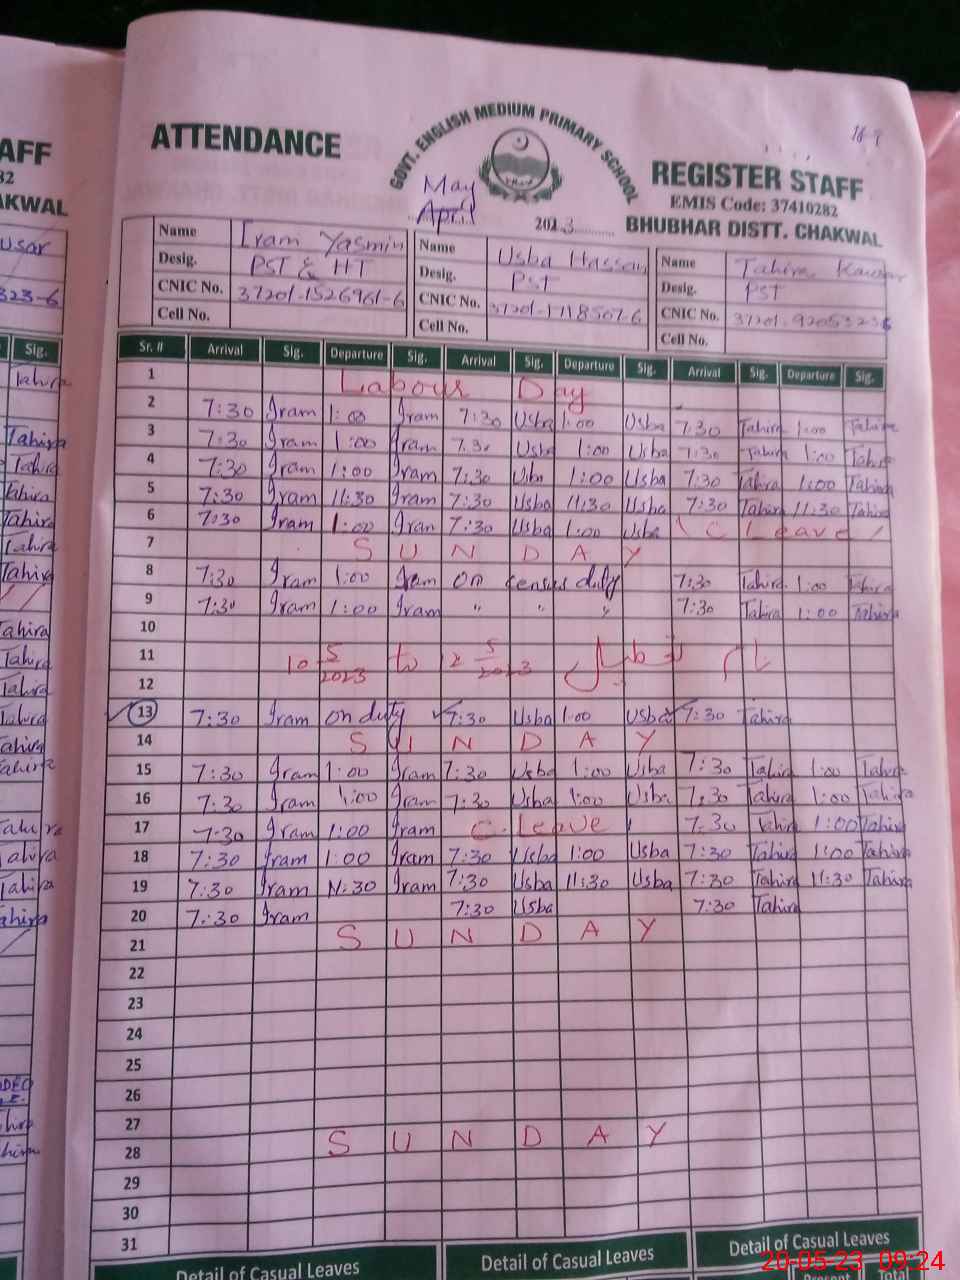 AFF
ATTENDANCE
GOVT. ENGLISH MEDIUM PRIMARY SCHOOL
REGISTER STAFF
EMIS Code: 37410282
May
April 2023
BHUBHAR DISTT. CHAKWAL
Name Iram Yasmin Name Usba Hassan Name Tahira Kausar
Desig. PST & HT Desig. PST Desig. PST
CNIC No. 37201-1526961-6 CNIC No. CNIC No.
Cell No. Cell No. Cell No.
Sr. # Arrival Sig. Departure Sig. Arrival Sig. Departure Sig. Arrival Sig. Departure Sig.
1 Labour Day
2 7:30 Iram 1:00 Iram 7:30 Usba 1:00 Usba 7:30 Tahira 1:00 Tahira
3 7:30 Iram 1:00 Iram 7:30 Usba 1:00 Usba 7:30 Tahira 1:00 Tahira
4 7:30 Iram 1:00 Iram 7:30 Usba 1:00 Usba 7:30 Tahira 1:00 Tahira
5 7:30 Iram 11:30 Iram 7:30 Usba 11:30 Usba 7:30 Tahira 11:30 Tahira
6 7:30 Iram 1:00 Iram 7:30 Usba 1:00 Usba C Leave
7 SUNDAY
8 7:30 Iram 1:00 Iram On census duty 7:30 Tahira 1:00 Tahira
9 7:30 Iram 1:00 Iram " " " 7:30 Tahira 1:00 Tahira
10
11 10 5/2023 to 12 5/2023 تعطیل
12
13 7:30 Iram on duty 7:30 Usba 1:00 Usba 7:30 Tahira
14 SUNDAY
15 7:30 Iram 1:00 Iram 7:30 Usba 1:00 Usba 7:30 Tahira 1:00 Tahira
16 7:30 Iram 1:00 Iram 7:30 Usba 1:00 Usba 7:30 Tahira 1:00 Tahira
17 7:30 Iram 1:00 Iram C. Leave 7:30 Tahira 1:00 Tahira
18 7:30 Iram 1:00 Iram 7:30 Usba 1:00 Usba 7:30 Tahira 1:00 Tahira
19 7:30 Iram 11:30 Iram 7:30 Usba 11:30 Usba 7:30 Tahira 11:30 Tahira
20 7:30 Iram 7:30 Usba 7:30 Tahira
21 SUNDAY
22
23
24
25
26
27
28 SUNDAY
29
30
31
Detail of Casual Leaves Detail of Casual Leaves Detail of Casual Leaves
20-05-23 09:24